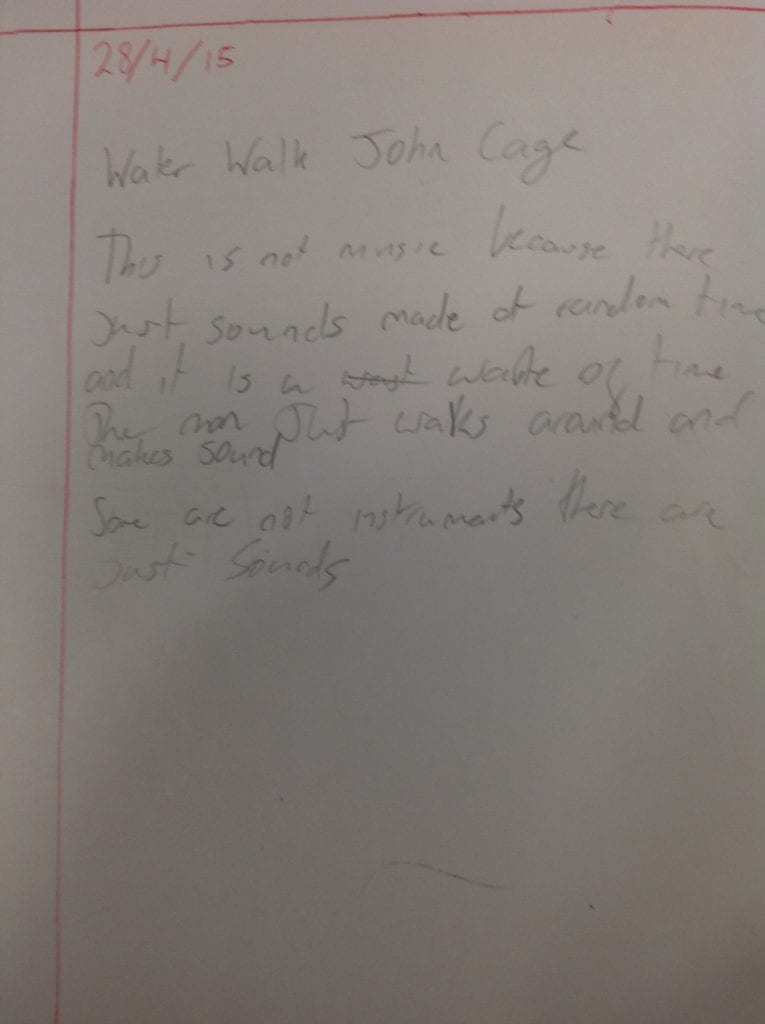 28/4/15
Water Walk John Cage
This is not music because there
Just sounds made at random time
and it is a waste of time
The man Just walks around and
makes sound
Some are not instruments there are
Just Sounds